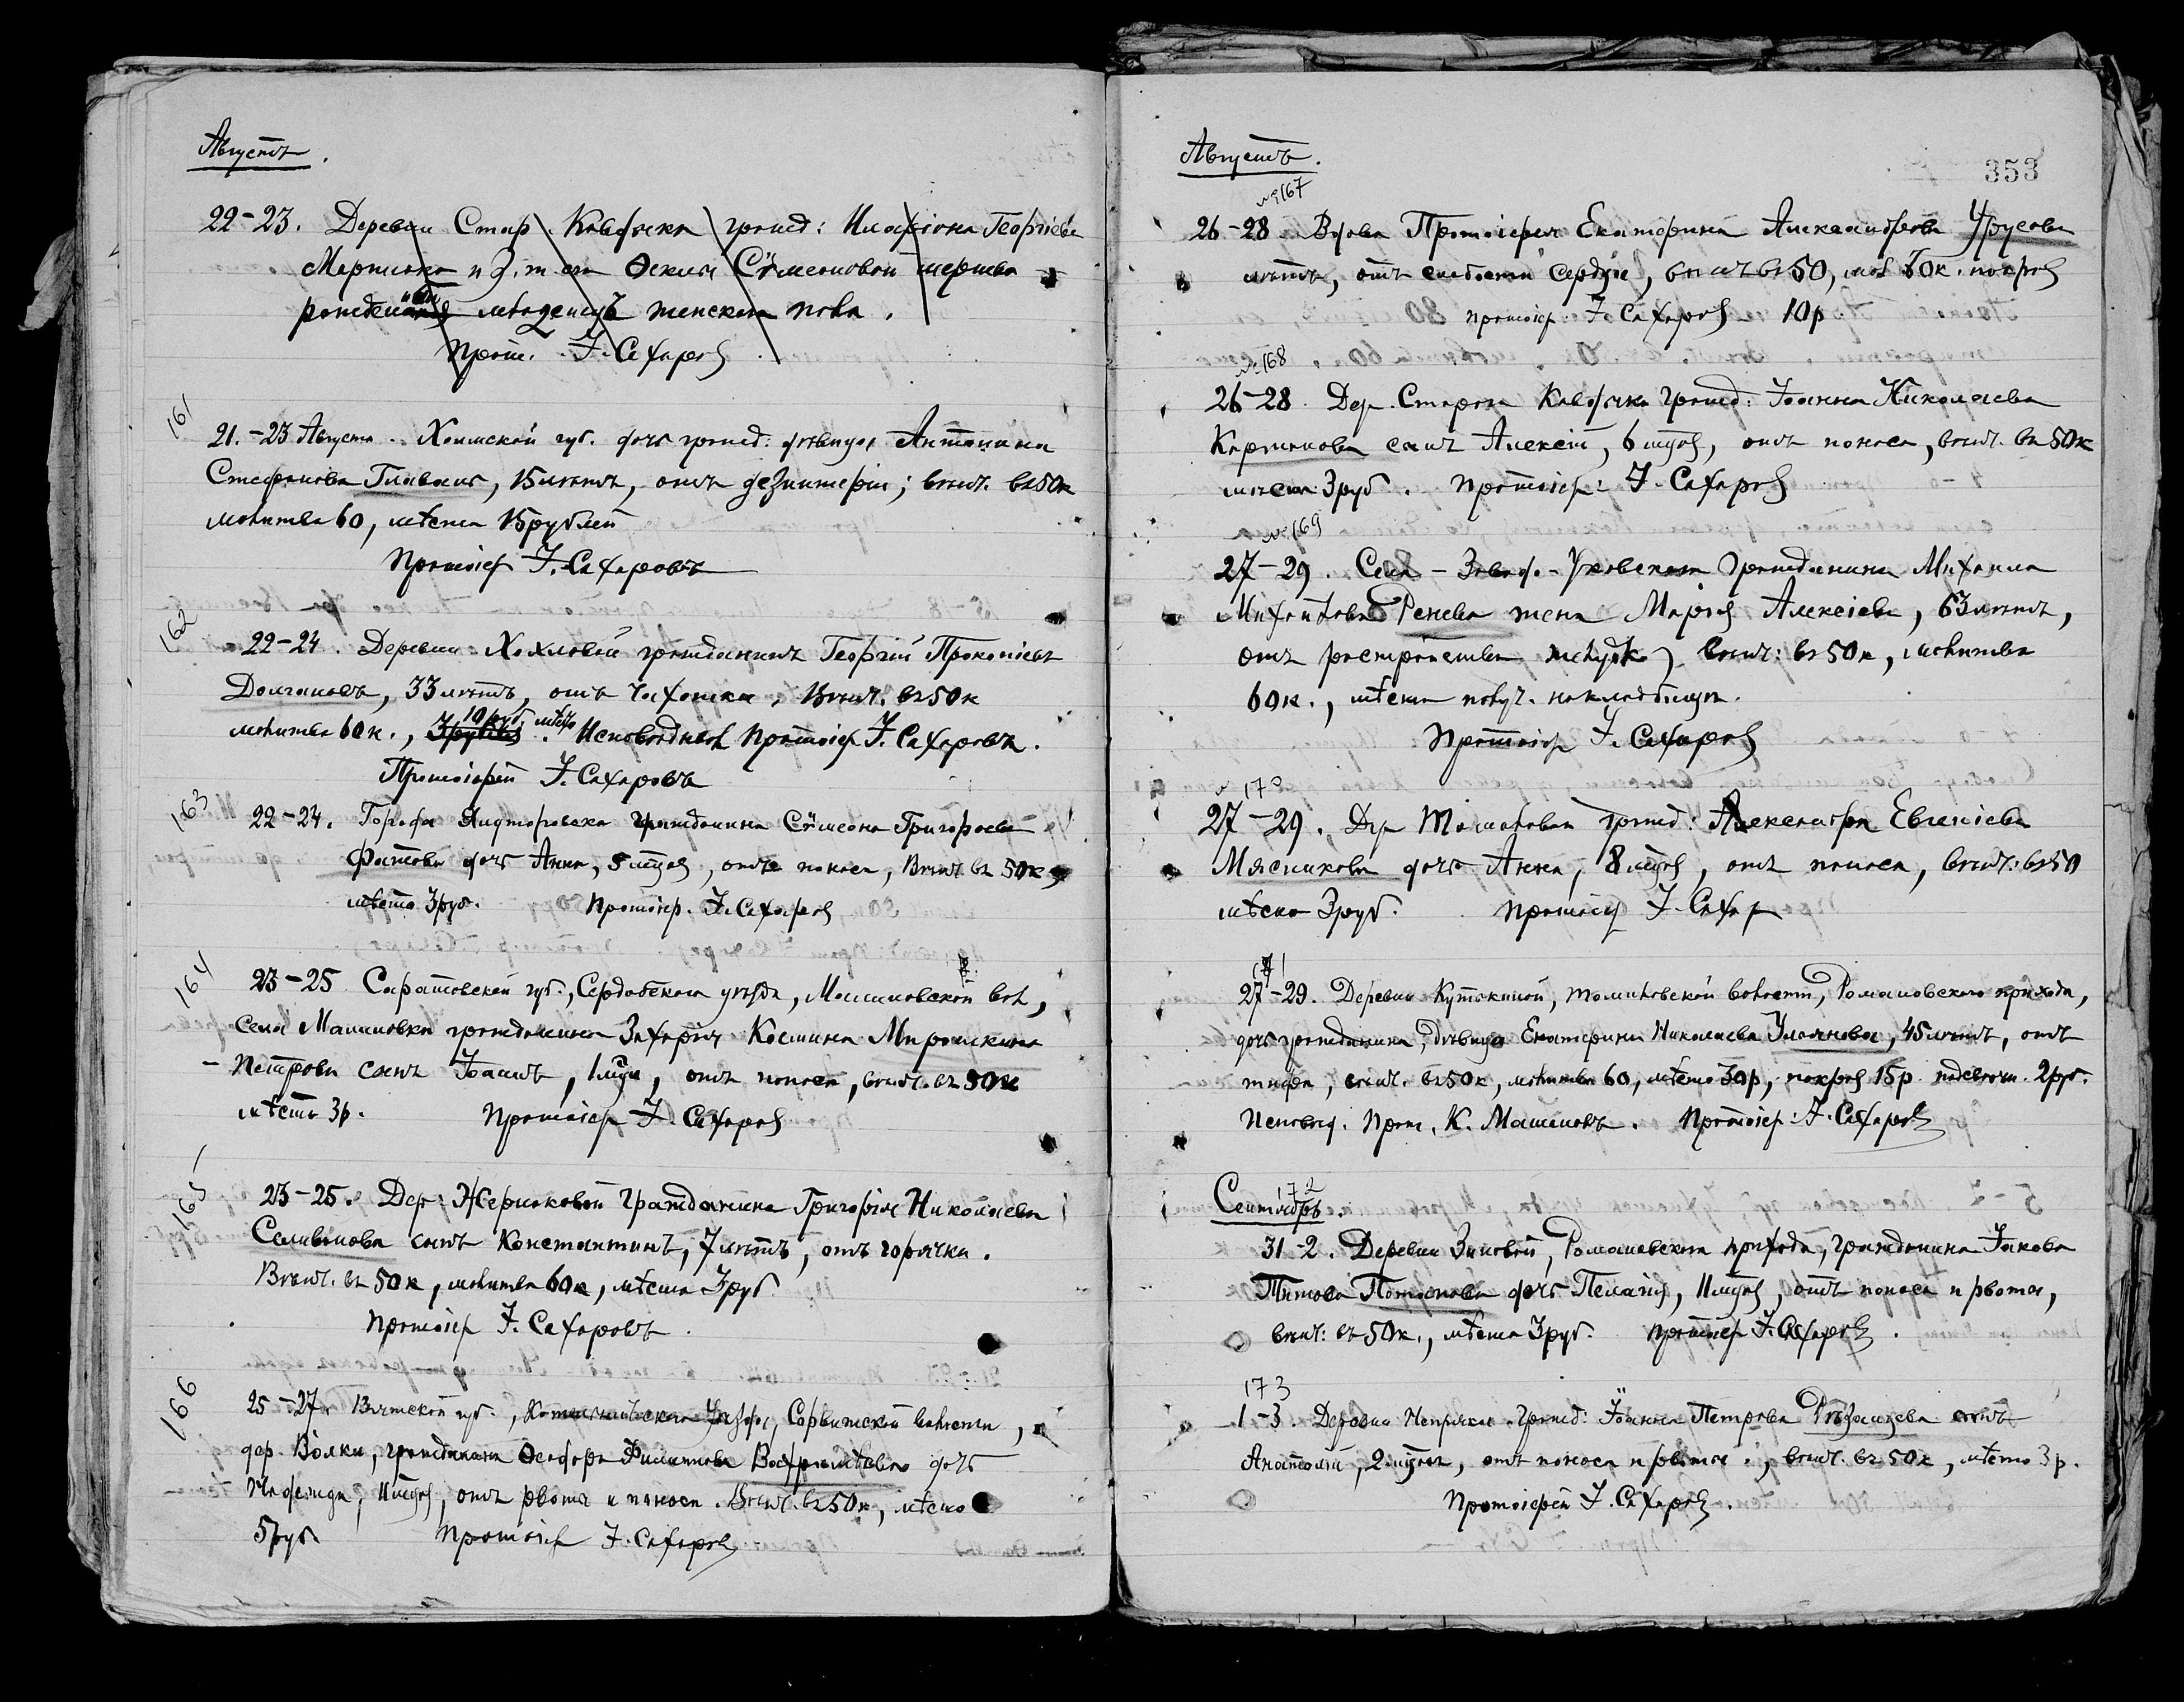 Августъ.
22-23. Деревни Стар. Кавдыка гражд: Илларіона Георгіева
Мартьяно и з. ж. его Ѳеклы Сѵмеоновой мертво
рожденный младенецъ женскаго пола.
Прот. І. Сахаровъ
161
21.-23 Августа. Холмской губ. дочь гражд: дѣвица Антонина
Стефанова Главась, 15 лѣтъ, отъ дезинтеріи; вѣнч. въ 50к
молитва 60, мѣсто 15 рублей
Протоіер І. Сахаровъ
162
22-24. Деревни Хохловой гражданинъ Георгій Прокопіевъ
Долгановъ, 33 лѣтъ, отъ чахотки. Вѣнч. въ 50к
10 руб мѣсто
молитва 60к., Исповѣдывал Протоіер І. Сахаровъ.
Протоіерей І. Сахаровъ
163
22-24. Города Ялуторовска гражданина Сѵмеона Григорьева
Фатѣева дочь Анна, 5 мцовъ, отъ поноса, Вѣнч. въ 50к,
мѣсто 3 руб. Протоіер. І. Сахаровъ
164
23-25 Саратовской губ., Сердобскаго уѣзда, Малиновской вол,
села Малиновки гражданина Захарія Космина Мирошкина
- Петрова сынъ Іоаннъ, 1 мца, отъ поноса, вѣнч. въ 50к
мѣсто 3р. Протоіер І. Сахаровъ
165
23-25. Дер: Жерноковой Гражданина Григорія Николаева
Селиванова сынъ Константинъ, 7 лѣтъ, отъ горячки.
Вѣнч. въ 50к, молитва 60к, мѣсто 3 руб
Протоіер І. Сахаровъ
166
25-27. Вятской губ., Котельническаго Уѣзда, Сорвижской волости,
дер. Волки, гражданина Ѳеодора Филиппова дочь
Надежда, 11 мцовъ, отъ рвоты и поноса. Вѣнч. въ 50к, мѣсто
5 руб Протоіер І. Сахаровъ
Августъ.
353
№ 167
26-28 Вдова Протоіерея Екатерина Александрова Урусова
лѣтъ, отъ слабости сердца, вѣнч въ 50, мол 60к. покров
протоіер. І. Сахаровъ 10р
№ 168
26-28. Дер. Стараго Кавдыка Гражд: Іоанна Николаева
Картанова сынъ Алексій, 6 мцовъ, отъ поноса, вѣнч. въ 50к
мѣсто 3 руб. Протоіер: І. Сахаровъ
№ 169
27-29. Села - Завод-Уковскаго Гражданина Михаила
Михайлова Ренева жена Марія Алексіева, 63 лѣтъ,
отъ разстройства желудка, вѣнч: въ 50к, молитва
60к., мѣсто на кладбищѣ.
Протоіер І. Сахаровъ
№ 170
27-29. Дер Томиловой гражд: Александра Евгеніева
Мясникова дочь Анна, 8 мцовъ, отъ поноса, вѣнч: въ 50
мѣсто 3 руб. Протоіер І. Сахар
171
27-29. Деревни Кутькиной, Томиловской волости, Романовскаго прихода,
дочь гражданина, дѣвица Екатерина Николаева Ульянова, 45 лѣтъ, отъ
тифа, вѣнч. въ 50к, молитва 60, мѣсто 30р, покров 15р подсвѣчн. 2 руб.
Исповѣд. Прот. К. Машановъ. Протоіер: І. Сахаровъ
172
Сентябрь.
31-2. Деревни Зиновой, Романовскаго прихода, гражданина Іакова
Титова Потапова дочь Пелагія, 11 мцовъ, отъ поноса и рвоты,
вѣнч: въ 50к., мѣсто 3 руб. Протоіер І. Сахаровъ.
173
1-3. Деревни Непряхи гражд: Іоанна Петрова Рѣзанцева сынъ
Анатолій, 2 мцовъ, отъ поноса и рвоты, вѣнч. въ 50к, мѣсто 3р.
Протоіерей І. Сахаровъ.